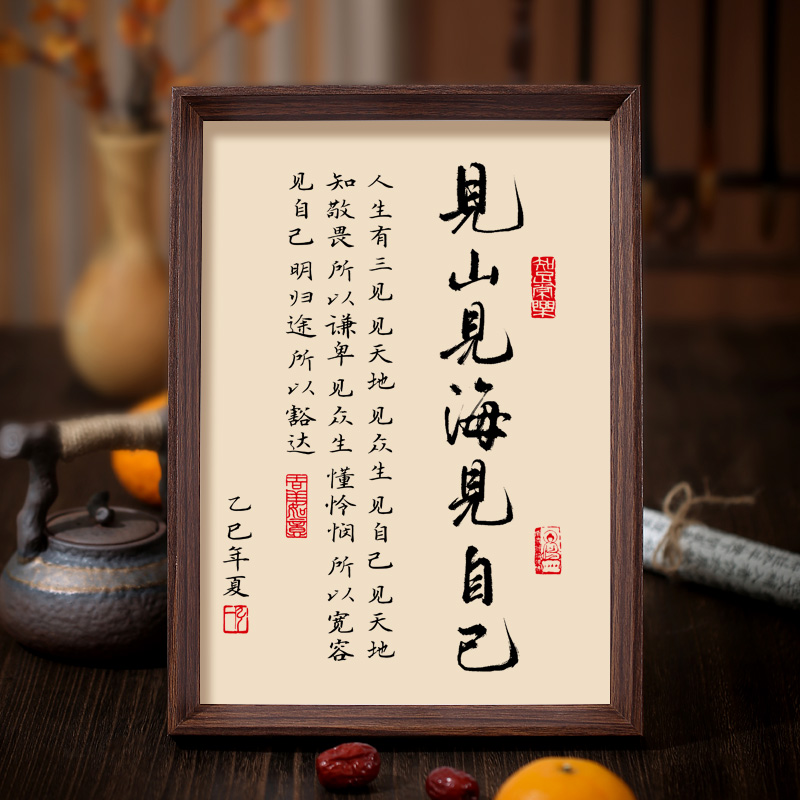 見山見海見自己
知足常樂
人生有三见见天地见众生见自己见天地
知敬畏所以谦卑见众生懂怜悯所以宽容
见自己明归途所以豁达
吉祥如意
乙巳年夏